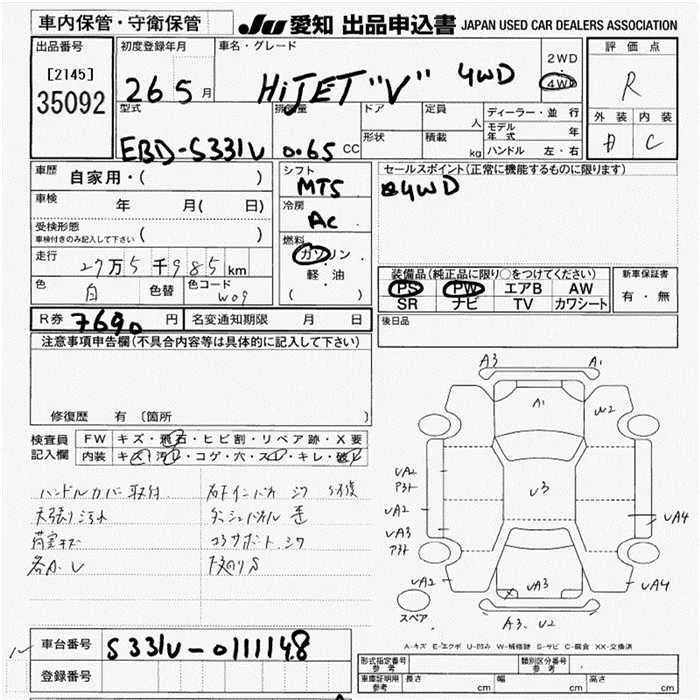 車内保管・守衛保管 JU 愛知 出品申込書 JAPAN USED CAR DEALERS ASSOCIATION
出品番号 [2145] 35092
初度登録年月 26 5 月
車名・グレード HiJET "V" 4WD
2WD ・ 4WD
評価点 R
外装 内装 C
型式 EBD-S331V
排気量 0.65 CC
ドア 形状
定員 人 積載 kg
ディーラー・並行
モデル年式 年
ハンドル 左・右
車歴 自家用・( )
車検 年 月( 日)
受検形態 車検付きのみ記入して下さい ( )
走行 27万5千985km
色 白 色替 色コード W09
シフト MT5
冷房 AC
燃料 ガソリン ・ 軽油 ( )
セールスポイント(正常に機能するものに限ります)
4WD
装備品(純正品に限り○をつけてください)
PS PW エアB AW
SR ナビ TV カワシート
新車保証書 有・無
R券 7690 円 名変通知期限 月 日
後日品
注意事項申告欄(不具合内容等は具体的に記入して下さい)
修復歴 有 〔箇所 〕
検査員記入欄 FW キズ・飛石・ヒビ割・リペア跡・X要
内装 キズ・汚れ・コゲ・穴・スレ・キレ・破れ
ハンドルカバー取付
天張り汚れ
荷室キズ
各A.U
A3 A1
A1
W2
UA2
U3
UA2
UA3
UA4
UA2 UA3 UA4
A3. U2
スペア
A-キズ E-エクボ U-凹み W-補修跡 S-サビ C-腐食 XX-交換済
車台番号 S331V-0111148
登録番号
形式指定番号 参考 類別区分番号 参考
車庫証明用 参考 長さ cm 幅 cm 高さ cm